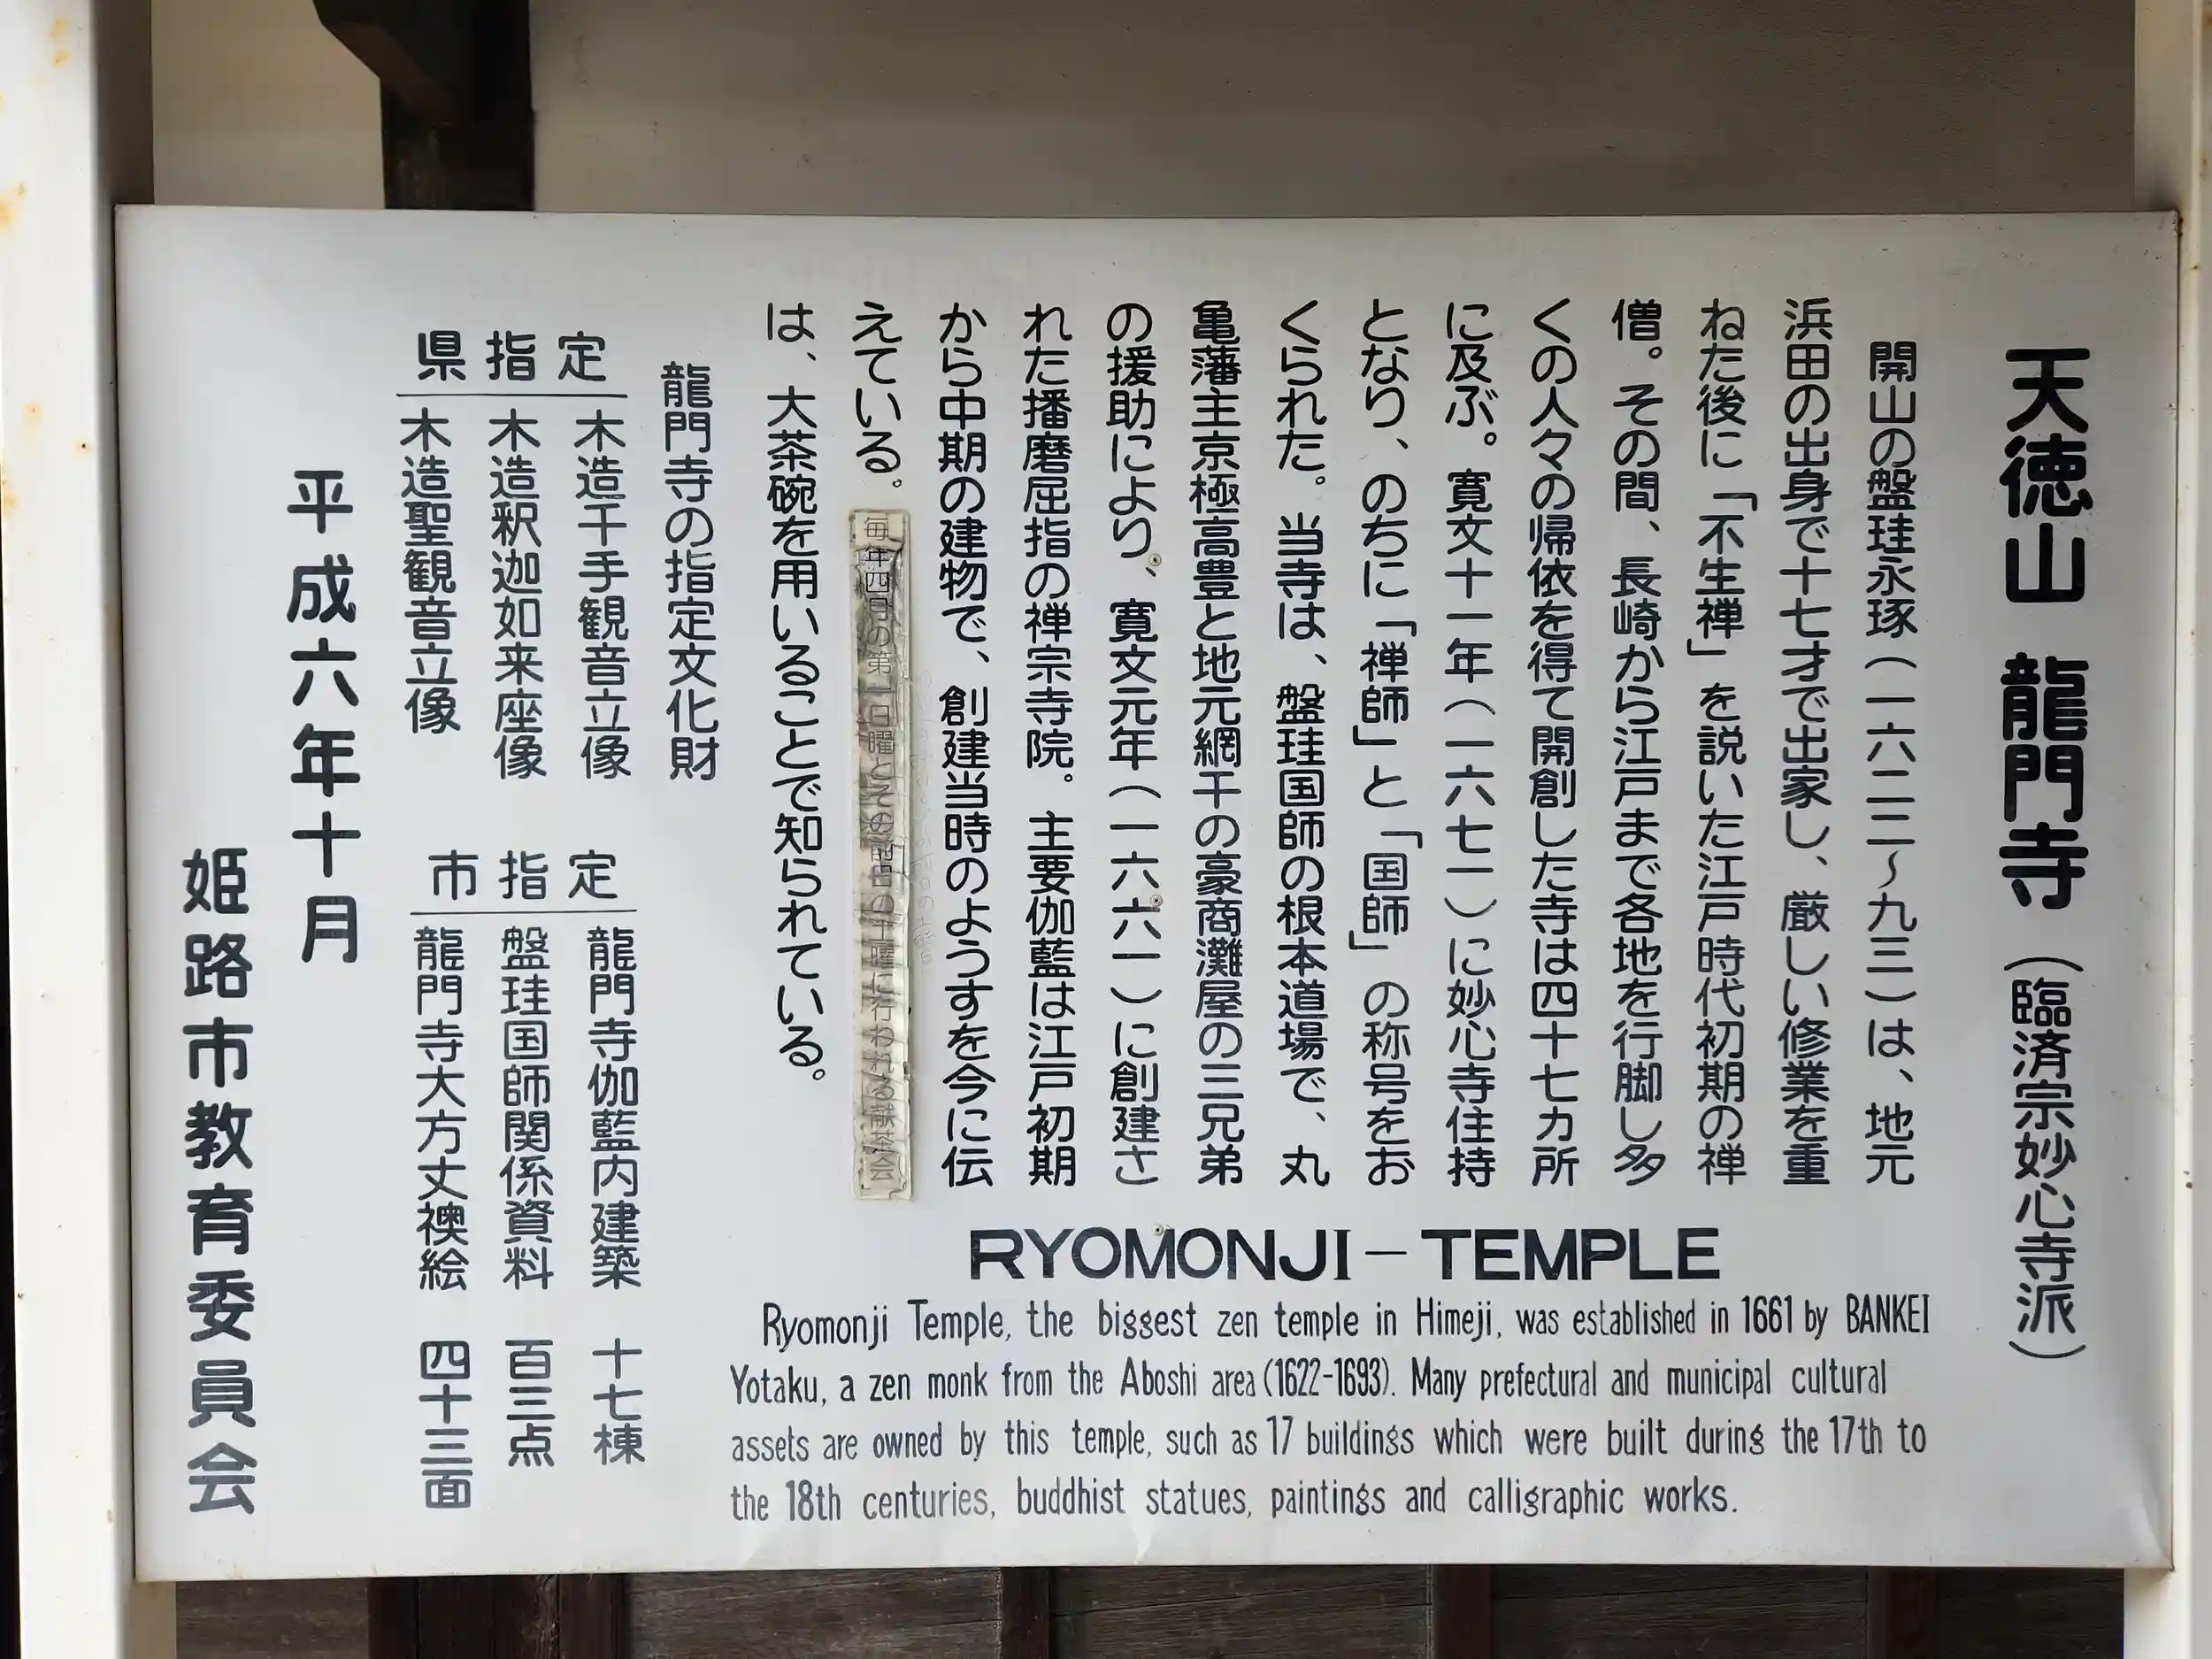 天徳山 龍門寺（臨済宗妙心寺派）
開山の盤珪永琢（一六二二〜九三）は、地元
浜田の出身で十七才で出家し、厳しい修業を重
ねた後に「不生禅」を説いた江戸時代初期の禅
僧。その間、長崎から江戸まで各地を行脚し多
くの人々の帰依を得て開創した寺は四十七カ所
に及ぶ。寛文十一年（一六七一）に妙心寺住持
となり、のちに「禅師」と「国師」の称号をお
くられた。当寺は、盤珪国師の根本道場で、丸
亀藩主京極高豊と地元網干の豪商灘屋の三兄弟
の援助により、寛文元年（一六六一）に創建さ
れた播磨屈指の禅宗寺院。主要伽藍は江戸初期
から中期の建物で、創建当時のようすを今に伝
えている。毎年四月の第一日曜とその前日の土曜に行われる献茶会
は、大茶碗を用いることで知られている。
龍門寺の指定文化財
県指定
木造千手観音立像
木造釈迦如来座像
木造聖観音立像
市指定
龍門寺伽藍内建築 十七棟
盤珪国師関係資料 百三点
龍門寺大方丈襖絵 四十三面
平成六年十月
姫路市教育委員会
RYOMONJI－TEMPLE
Ryomonji Temple, the biggest zen temple in Himeji, was established in 1661 by BANKEI
Yotaku, a zen monk from the Aboshi area (1622-1693). Many prefectural and municipal cultural
assets are owned by this temple, such as 17 buildings which were built during the 17th to
the 18th centuries, buddhist statues, paintings and calligraphic works.